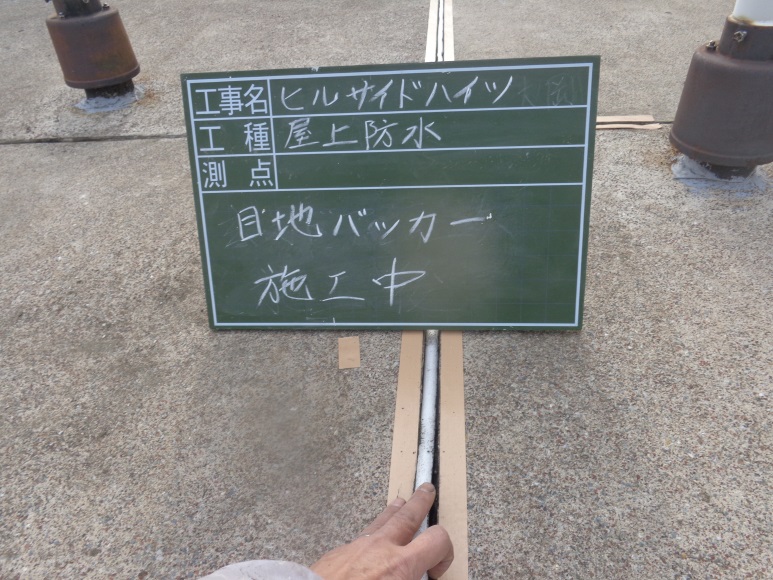 工事名 ヒルサイドハイツ
工種 屋上防水
測点
目地バッカー
施工中